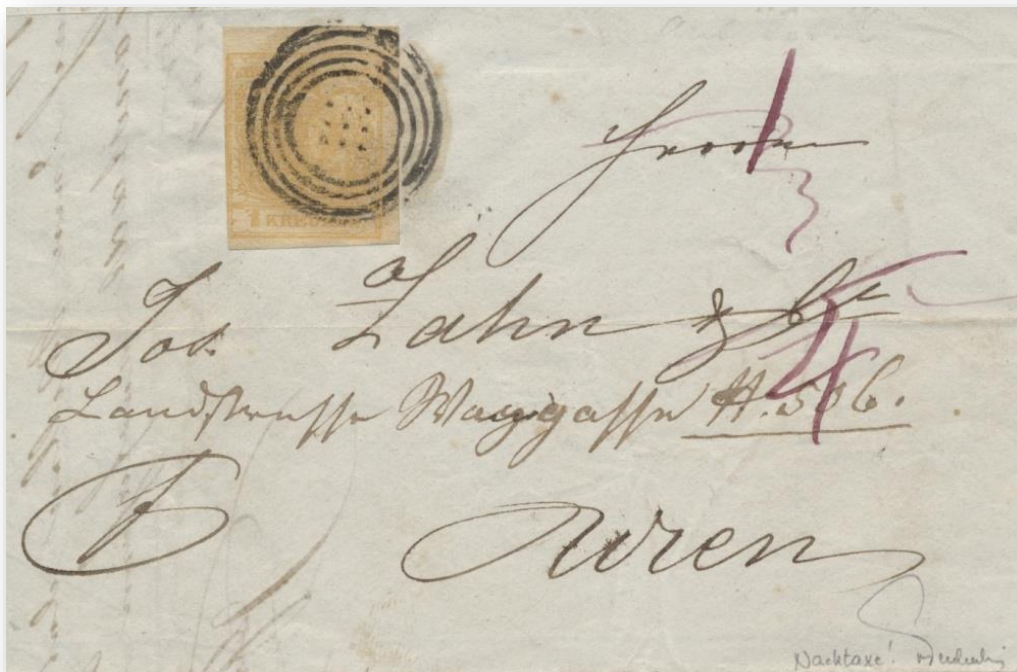 1 KREUZER
Herrn
Jos. Zahn & Co
Landstrasse Waaggasse N. 506.
Wien
4
Nachtaxe!